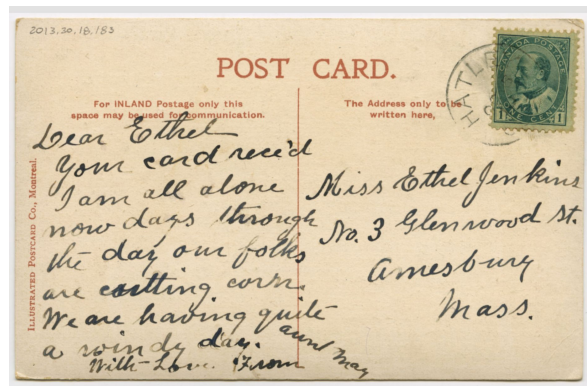 2013.30.18.183
POST CARD.
For INLAND Postage only this
space may be used for communication.
The Address only to be
written here,
CANADA POSTAGE
1 ONE CENT 1
HATLEY
ILLUSTRATED POSTCARD CO., Montreal.
Dear Ethel
Your card rec'd
I am all alone
now days through
the day our folks
are cutting corn.
We are having quite
a windy day.
With Love. From
aunt May
Miss Ethel Jenkins
No. 3 Glenwood St.
Amesbury
Mass.